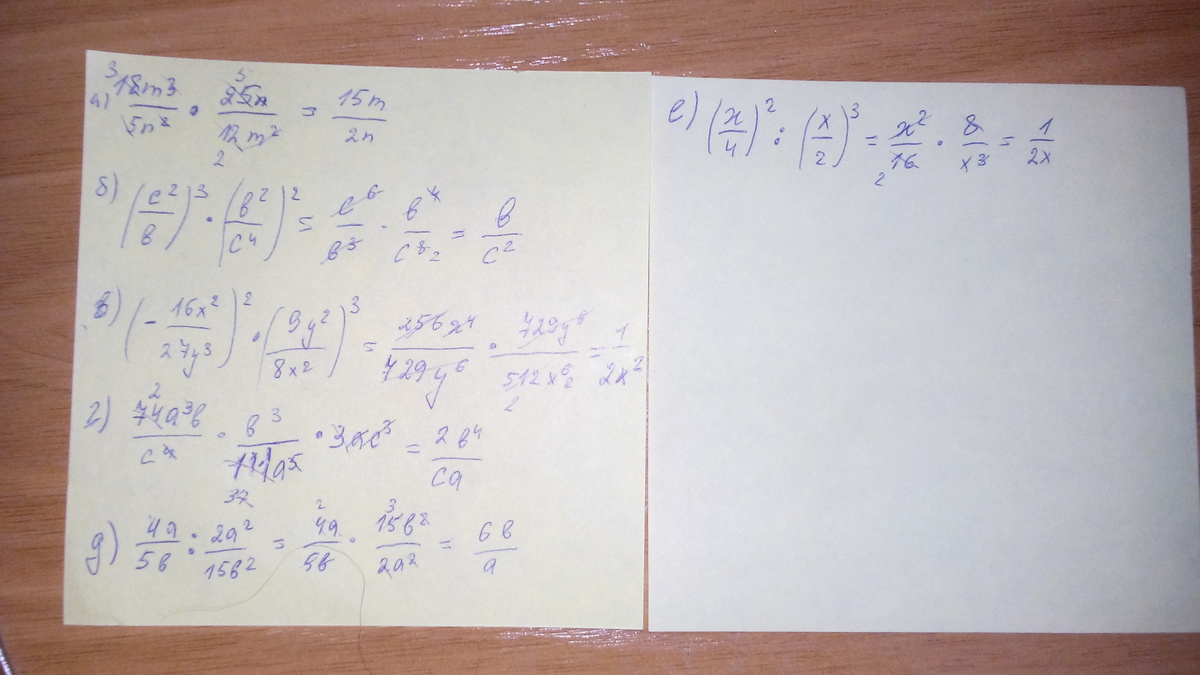 а) 18m³/5n² · 25n/12m² = 15m/2n
б) (c²/в)³ · (в²/c⁴)² = c⁶/в³ · в⁴/c⁸ = в/c²
в) (- 16x²/27y³)² · (9y²/8x²)³ = 256x⁴/729y⁶ · 729y⁶/512x⁶ = 1/2x²
г) 74a³в/c⁴ · в³/111a⁵ · 3ac³ = 2в⁴/ca
д) 4a/5в : 2a²/15в² = 4a/5в · 15в²/2a² = 6в/a
е) (x/4)² : (x/2)³ = x²/16 · 8/x³ = 1/2x